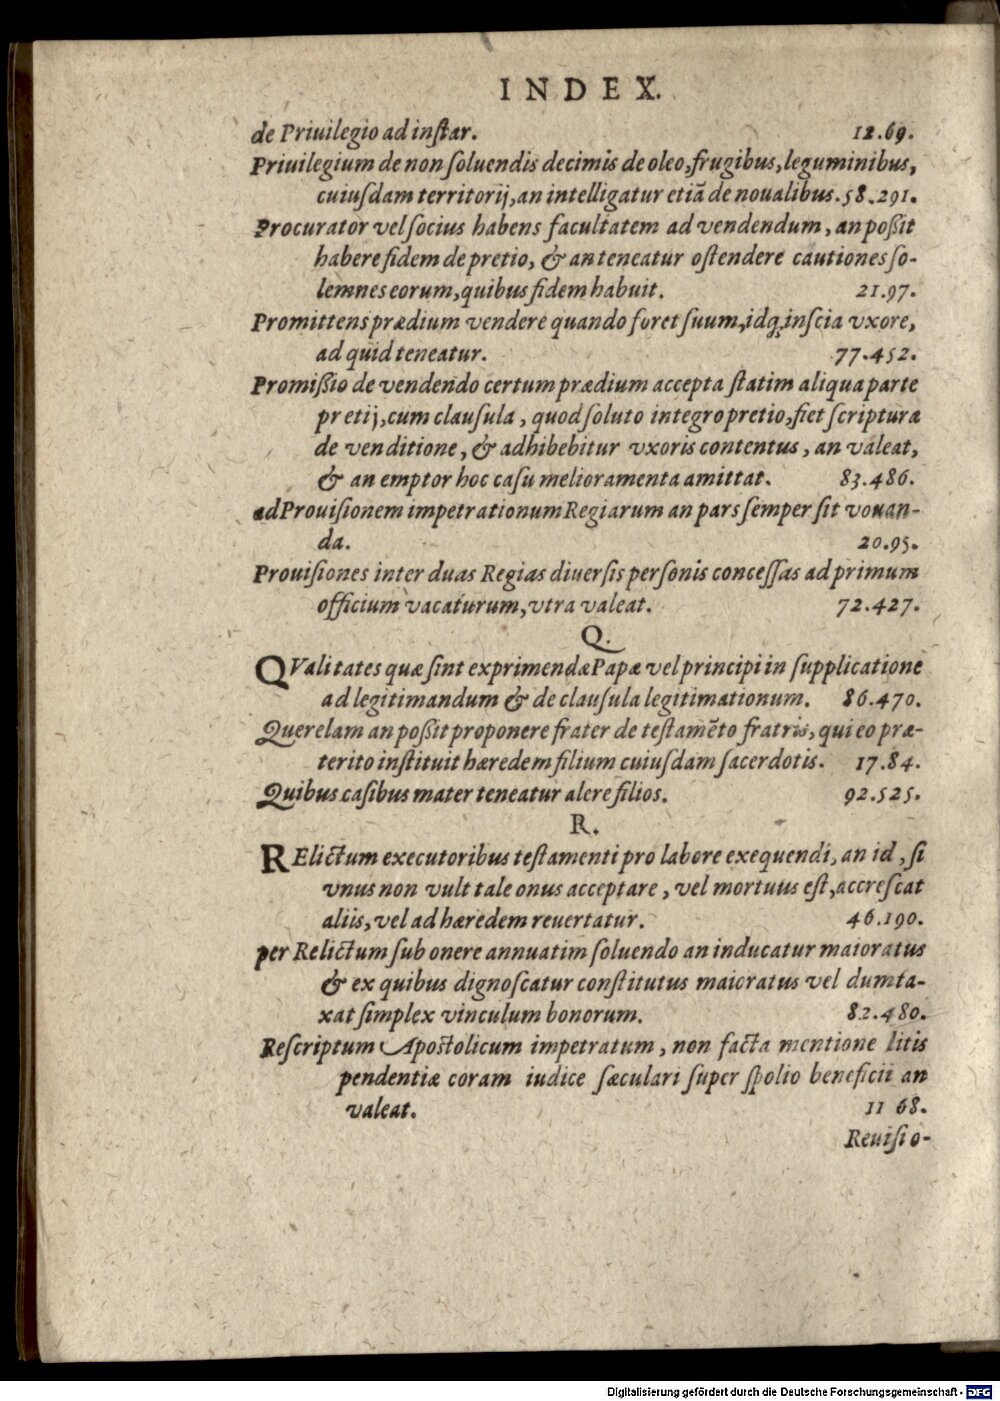 INDEX.
de Priuilegio ad inſtar. 12.69.
Priuilegium de non ſoluendis decimis de oleo, frugibus, leguminibus,
cuiuſdam territorij, an intelligatur etiã de noualibus. 58.291.
Procurator vel ſocius habens facultatem ad vendendum, an poßit
habere fidem de pretio, & an teneatur oſtendere cautiones ſo-
lemnes eorum, quibus fidem habuit. 21.97.
Promittens prædium vendere quando foret ſuum, idq́ inſcia vxore,
ad quid teneatur. 77.452.
Promißio de vendendo certum prædium accepta ſtatim aliqua parte
pretij, cum clauſula, quod ſoluto integro pretio, fiet ſcriptura
de venditione, & adhibebitur vxoris contentus, an valeat,
& an emptor hoc caſu melioramenta amittat. 83.486.
ad Prouiſionem impetrationum Regiarum an pars ſemper ſit vouan-
da. 20.95.
Prouiſiones inter duas Regias diuerſis perſonis conceſſas ad primum
officium vacaturum, vtra valeat. 72.427.
Q.
QValitates quæ ſint exprimendæ Papæ vel principi in ſupplicatione
ad legitimandum & de clauſula legitimationum. 86.470.
Querelam an poßit proponere frater de teſtamẽto fratris, qui eo præ-
terito inſtituit hæredem filium cuiuſdam ſacerdotis. 17.84.
Quibus caſibus mater teneatur alere filios. 92.525.
R.
RElictum executoribus teſtamenti pro labore exequendi, an id, ſi
vnus non vult tale onus acceptare, vel mortuus eſt, accreſcat
aliis, vel ad hæredem reuertatur. 46.190.
per Relictum ſub onere annuatim ſoluendo an inducatur maioratus
& ex quibus dignoſcatur conſtitutus maioratus vel dumta-
xat ſimplex vinculum bonorum. 82.480.
Reſcriptum Apoſtolicum impetratum, non facta mentione litis
pendentiæ coram iudice ſæculari ſuper ſpolio beneficii an
valeat. 11 68.
Reuiſio-
Digitalisierung gefördert durch die Deutsche Forschungsgemeinschaft - DFG